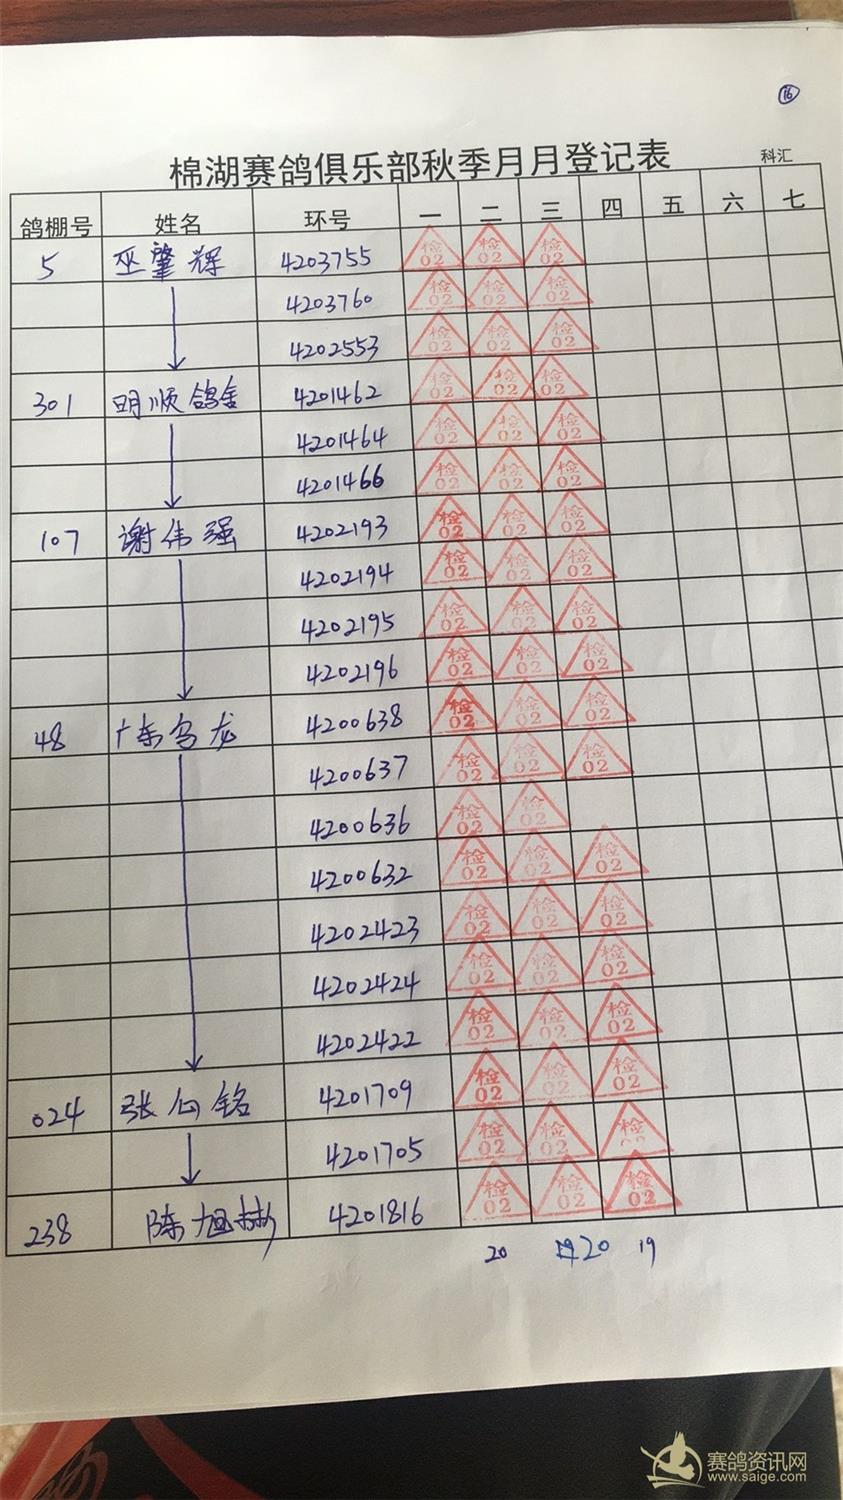 16
棉湖赛鸽俱乐部秋季月月登记表 科汇
鸽棚号 姓名 环号 一 二 三 四 五 六 七
5 巫肇辉 4203755 检02 检02 检02
4203760 检02 检02 检02
4202553 检02 检02 检02
301 明顺鸽舍 4201462 检02 检02 检02
4201464 检02 检02 检02
4201466 检02 检02 检02
107 谢伟强 4202193 检02 检02 检02
4202194 检02 检02 检02
4202195 检02 检02 检02
4202196 检02 检02 检02
48 广东乌龙 4200638 检02 检02 检02
4200637 检02 检02 检02
4200636 检02 检02
4200632 检02 检02 检02
4202423 检02 检02 检02
4202424 检02 检02 检02
4202422 检02 检02 检02
024 张心铭 4201709 检02 检02 检02
4201705 检02 检02 检02
238 陈旭彬 4201816 检02 检02 检02
20 20 19
赛鸽资讯网
www.saige.com